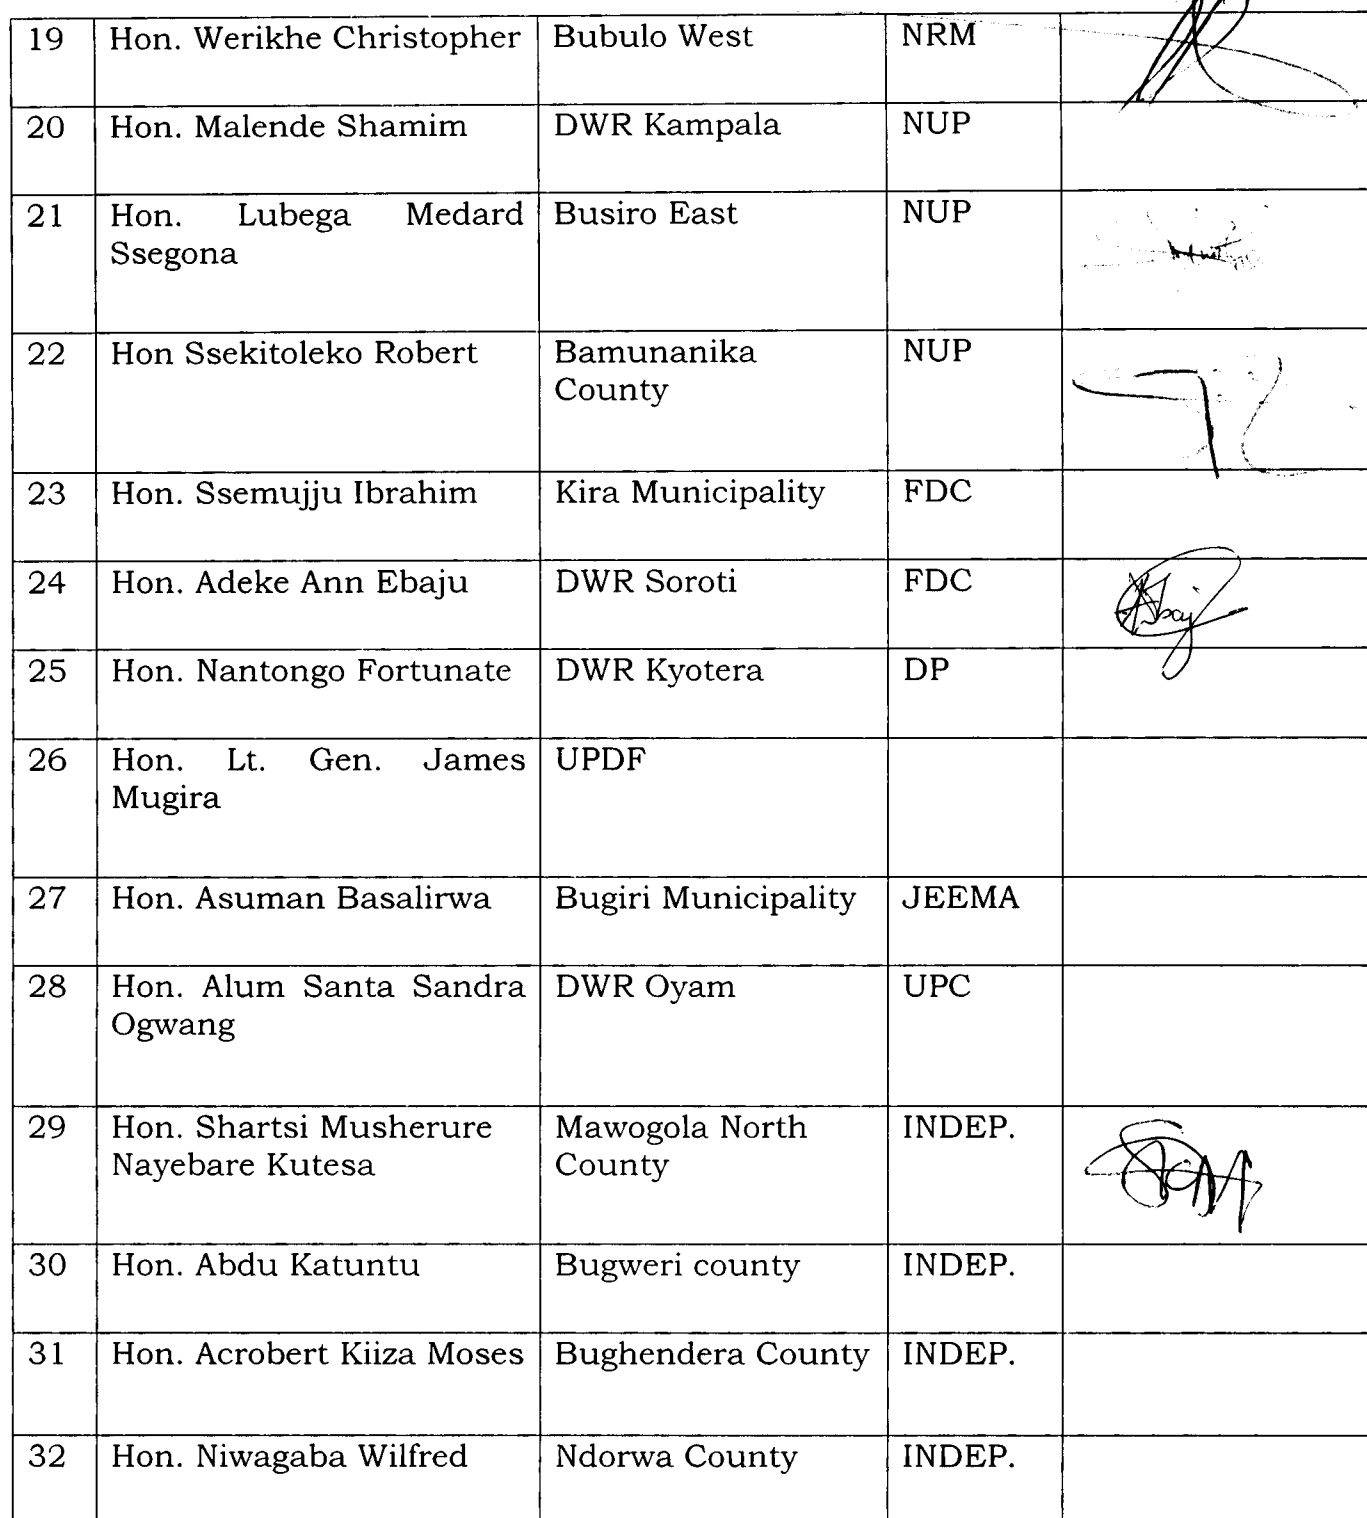 19 Hon. Werikhe Christopher Bubulo West NRM
20 Hon. Malende Shamim DWR Kampala NUP
21 Hon. Lubega Medard Busiro East NUP
Ssegona
22 Hon Ssekitoleko Robert Bamunanika NUP
County
23 Hon. Ssemujju Ibrahim Kira Municipality FDC
24 Hon. Adeke Ann Ebaju DWR Soroti FDC
25 Hon. Nantongo Fortunate DWR Kyotera DP
26 Hon. Lt. Gen. James UPDF
Mugira
27 Hon. Asuman Basalirwa Bugiri Municipality JEEMA
28 Hon. Alum Santa Sandra DWR Oyam UPC
Ogwang
29 Hon. Shartsi Musherure Mawogola North INDEP.
Nayebare Kutesa County
30 Hon. Abdu Katuntu Bugweri county INDEP.
31 Hon. Acrobert Kiiza Moses Bughendera County INDEP.
32 Hon. Niwagaba Wilfred Ndorwa County INDEP.